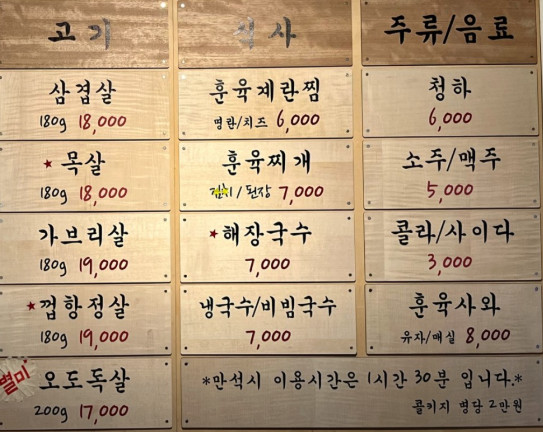 고기
식사
주류/음료
삼겹살
180g 18,000
훈육계란찜
명란/치즈 6,000
청하
6,000
★목살
180g 18,000
훈육찌개
김치/된장 7,000
소주/맥주
5,000
가브리살
180g 19,000
★해장국수
7,000
콜라/사이다
3,000
★껍항정살
180g 19,000
냉국수/비빔국수
7,000
훈육사와
유자/매실 8,000
별미
오도독살
200g 17,000
*만석시 이용시간은 1시간 30분 입니다.*
콜키지 병당 2만원